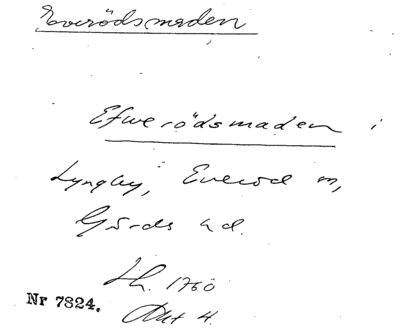 Everödsmaden
Efwerödsmaden i
Lyngby, Everöd m,
Gärds hd.
Lh. 1760
Akt 4.
Nr 7824.